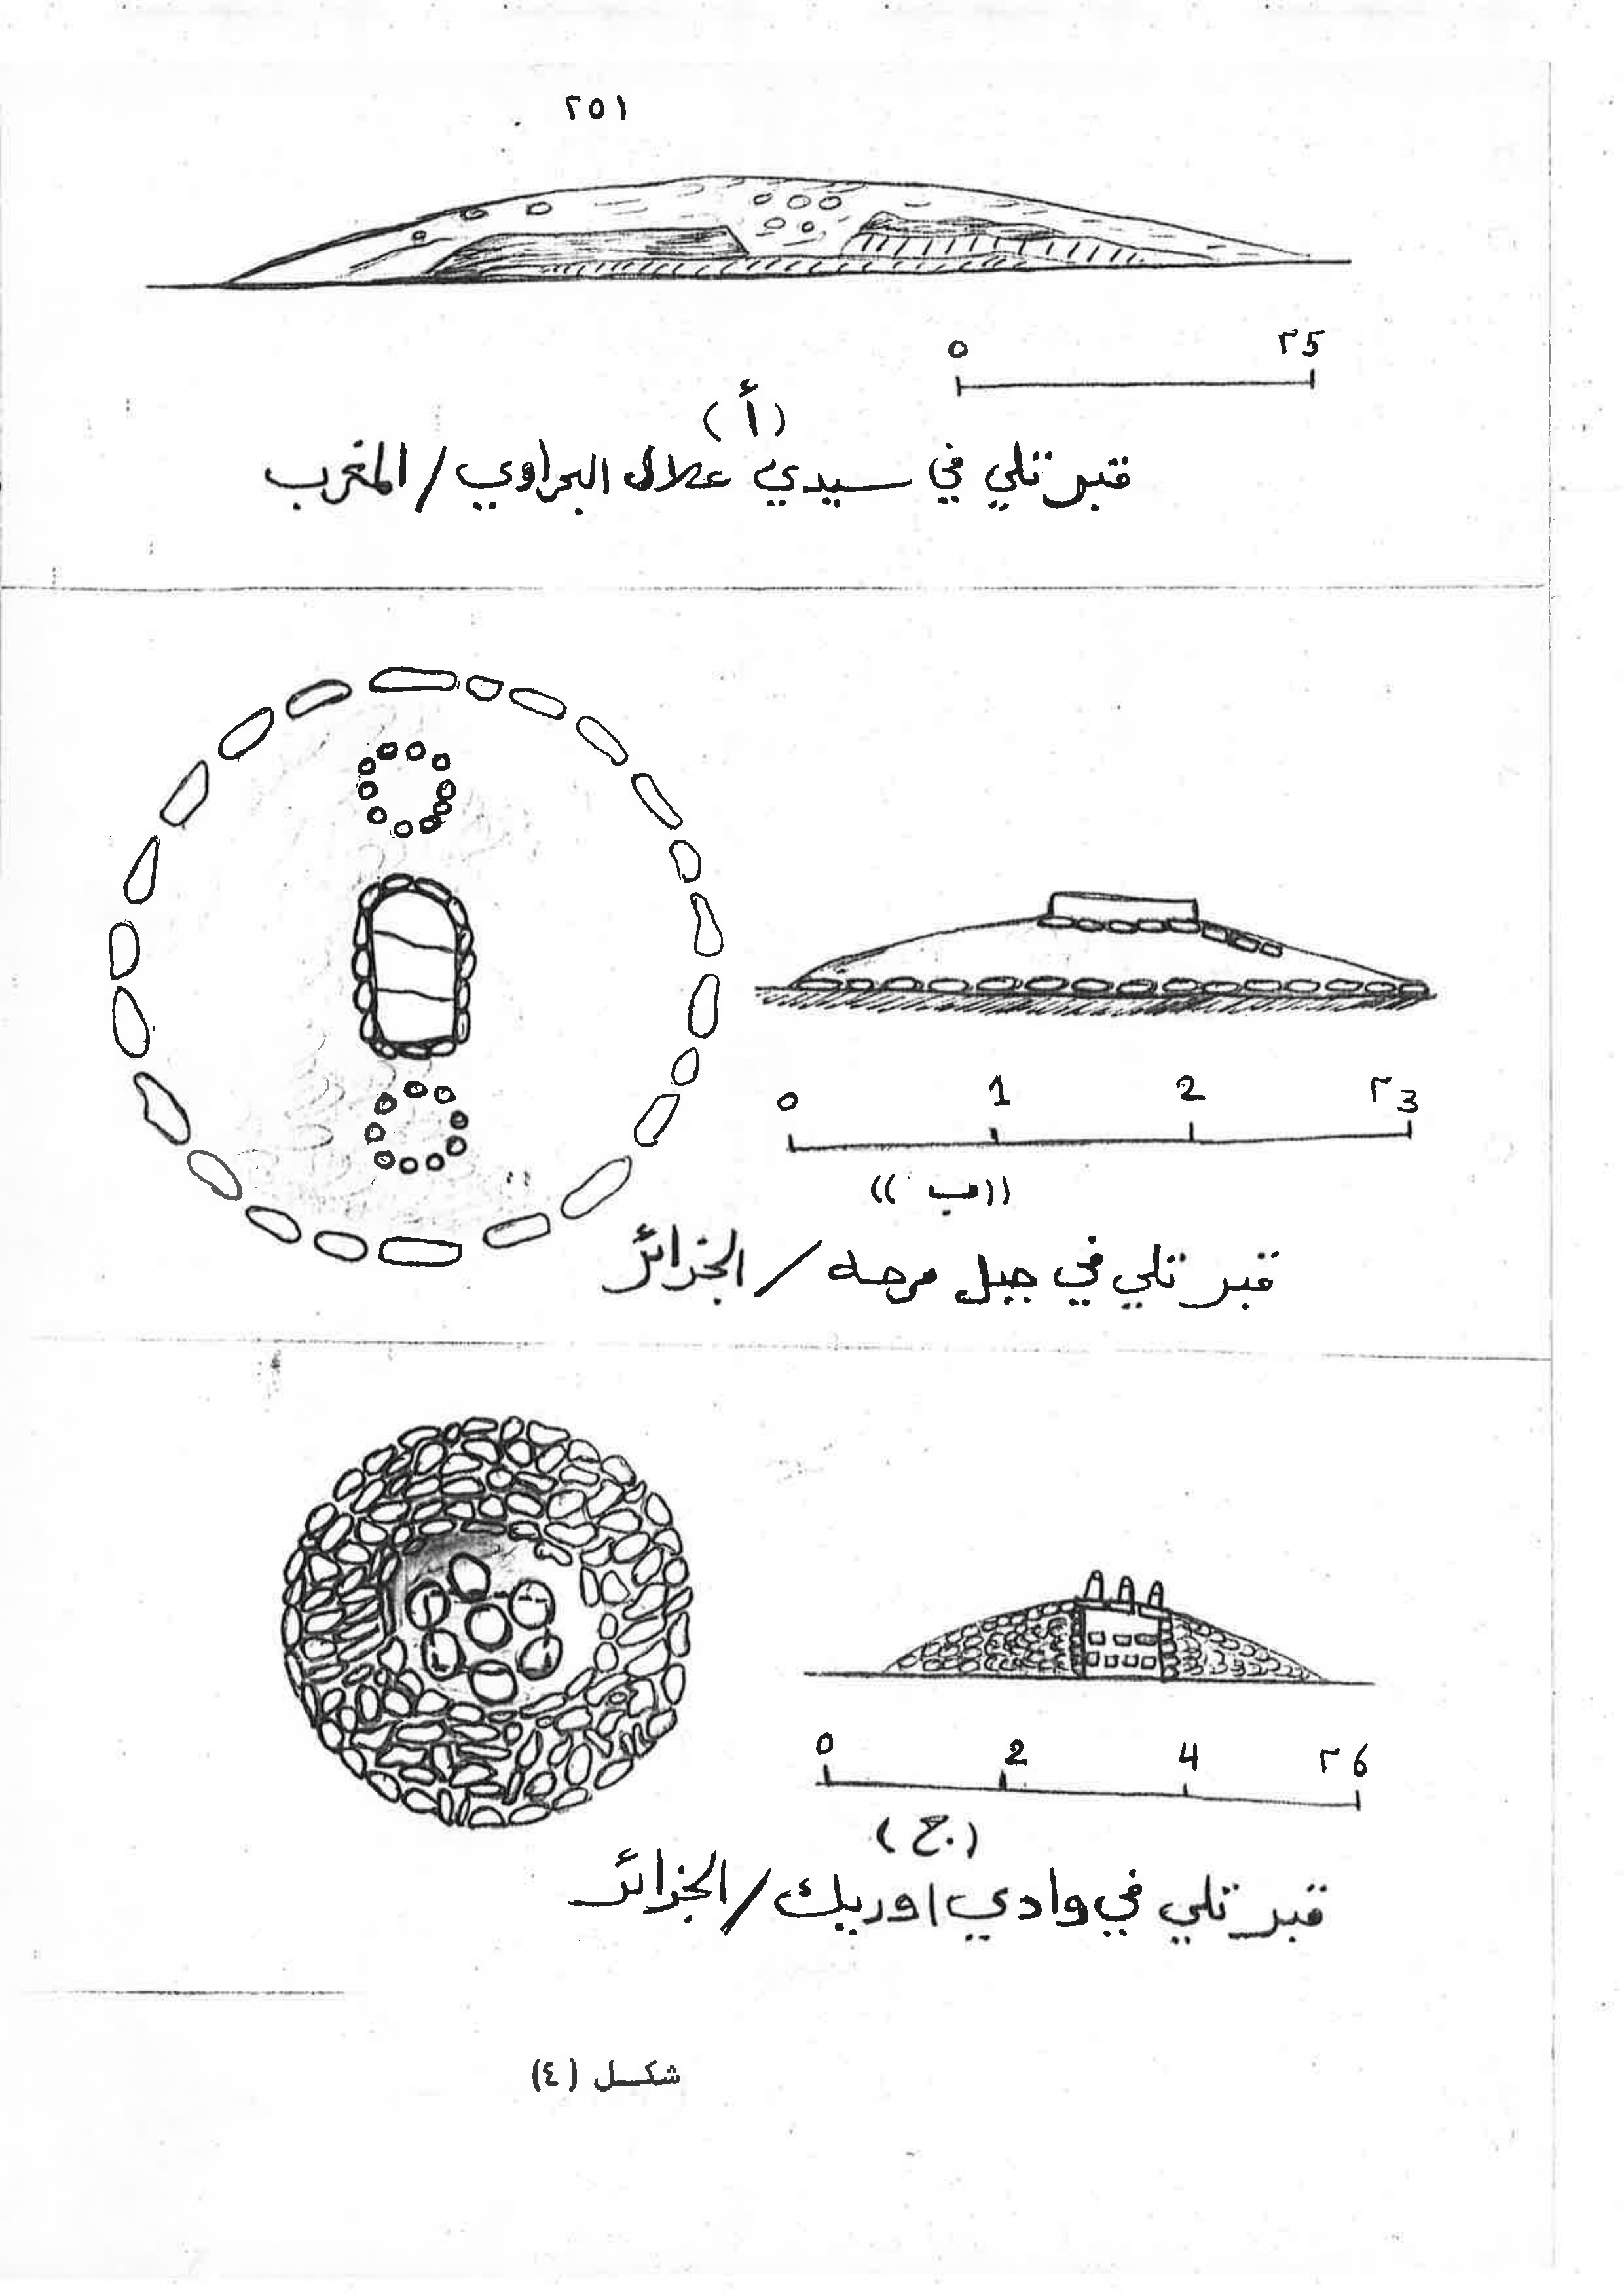 ٢٥١
0 5م
(أ)
قبر تلي في سيدي علال البحراوي / المغرب
0 1 2 3م
((ب))
قبر تلي في جبل مرحه / الجزائر
0 2 4 6م
(ج)
قبر تلي في وادي اوريك / الجزائر
شكل (٤)